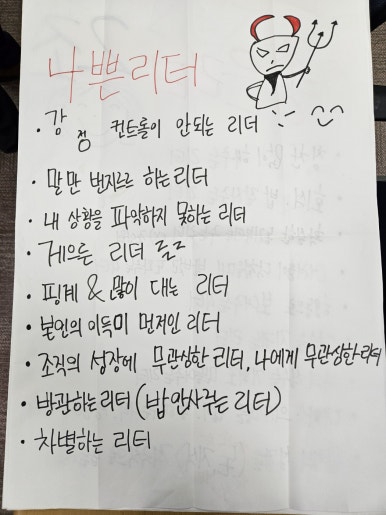 나쁜리더
· 강점 컨트롤이 안되는 리더
· 말만 번지르르 하는리더
· 내 상황을 파악하지 못하는 리더
· 게으른 리더
· 핑계 & 많이 대는 리더
· 본인의 이득이 먼저인 리더
· 조직의 성장에 무관심한 리더, 나에게 무관심한 리더
· 방관하는리더 (밥 안사주는 리더)
· 차별하는 리더